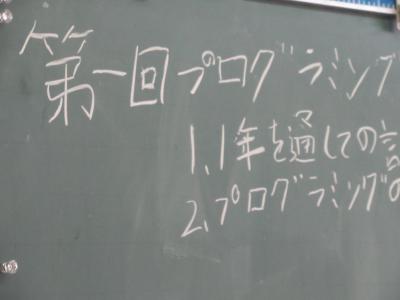 第一回プログラミング
1.1年を通しての
2.プログラミングの